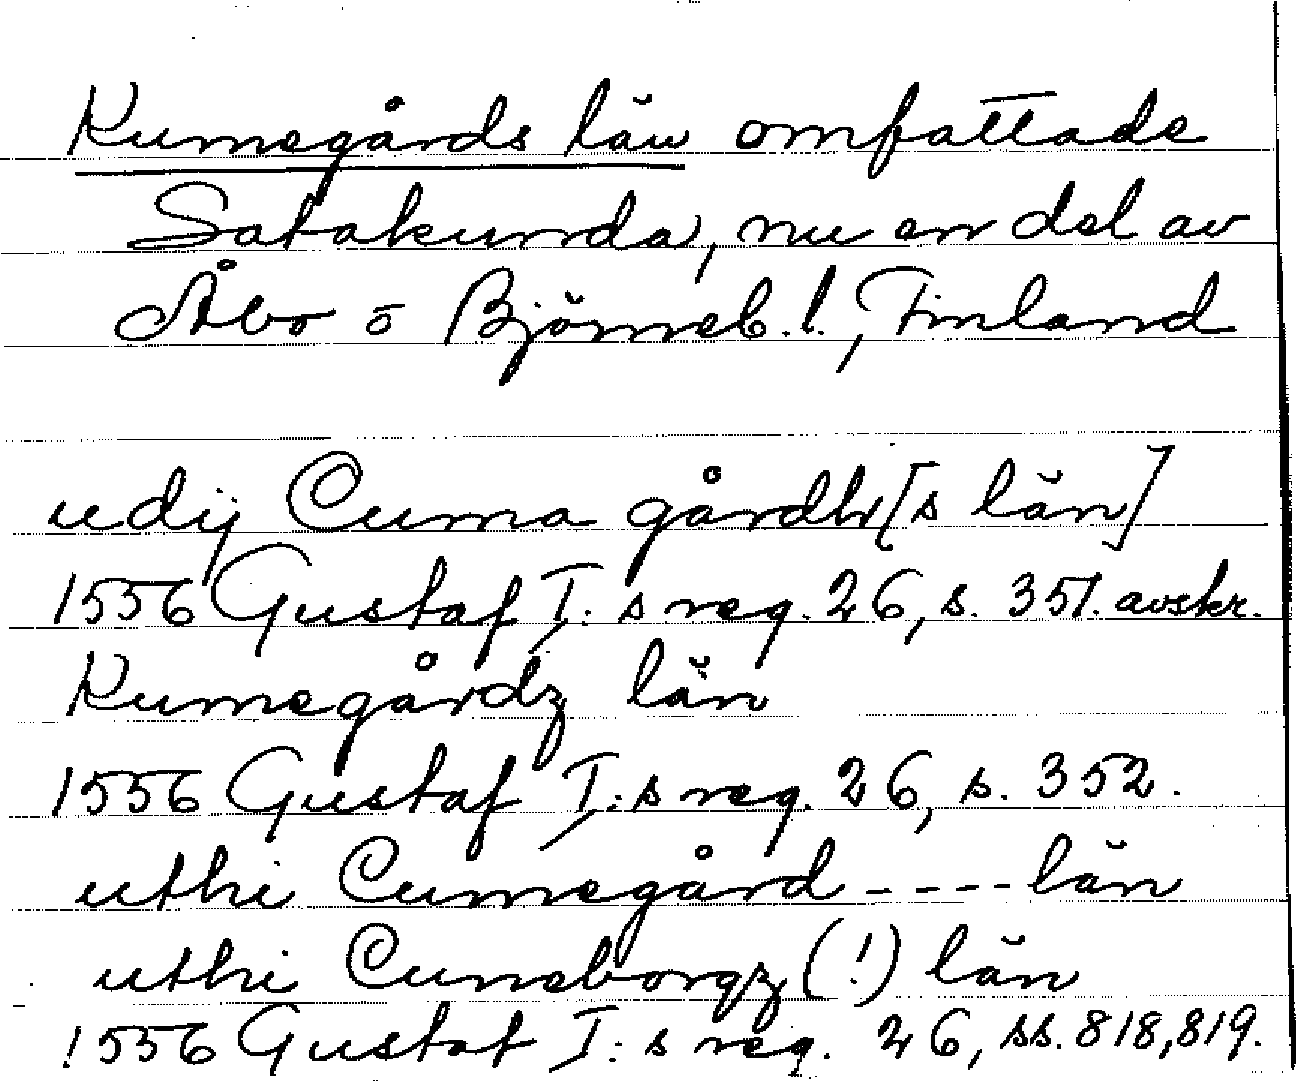 Kumegårds län omfattade
Satakunda, nu en del av
Åbo o Björneb. l., Finland
udij Cuma gårdh[s län]
1556 Gustaf I: s reg. 26, s. 351. avskr.
Kumegårdz län
1556 Gustaf I: s reg. 26, s. 352.
uthi Cumegård - - - - län
uthi Cuneborgz (!) län
1556 Gustaf I: s reg. 26, ss. 818, 819.